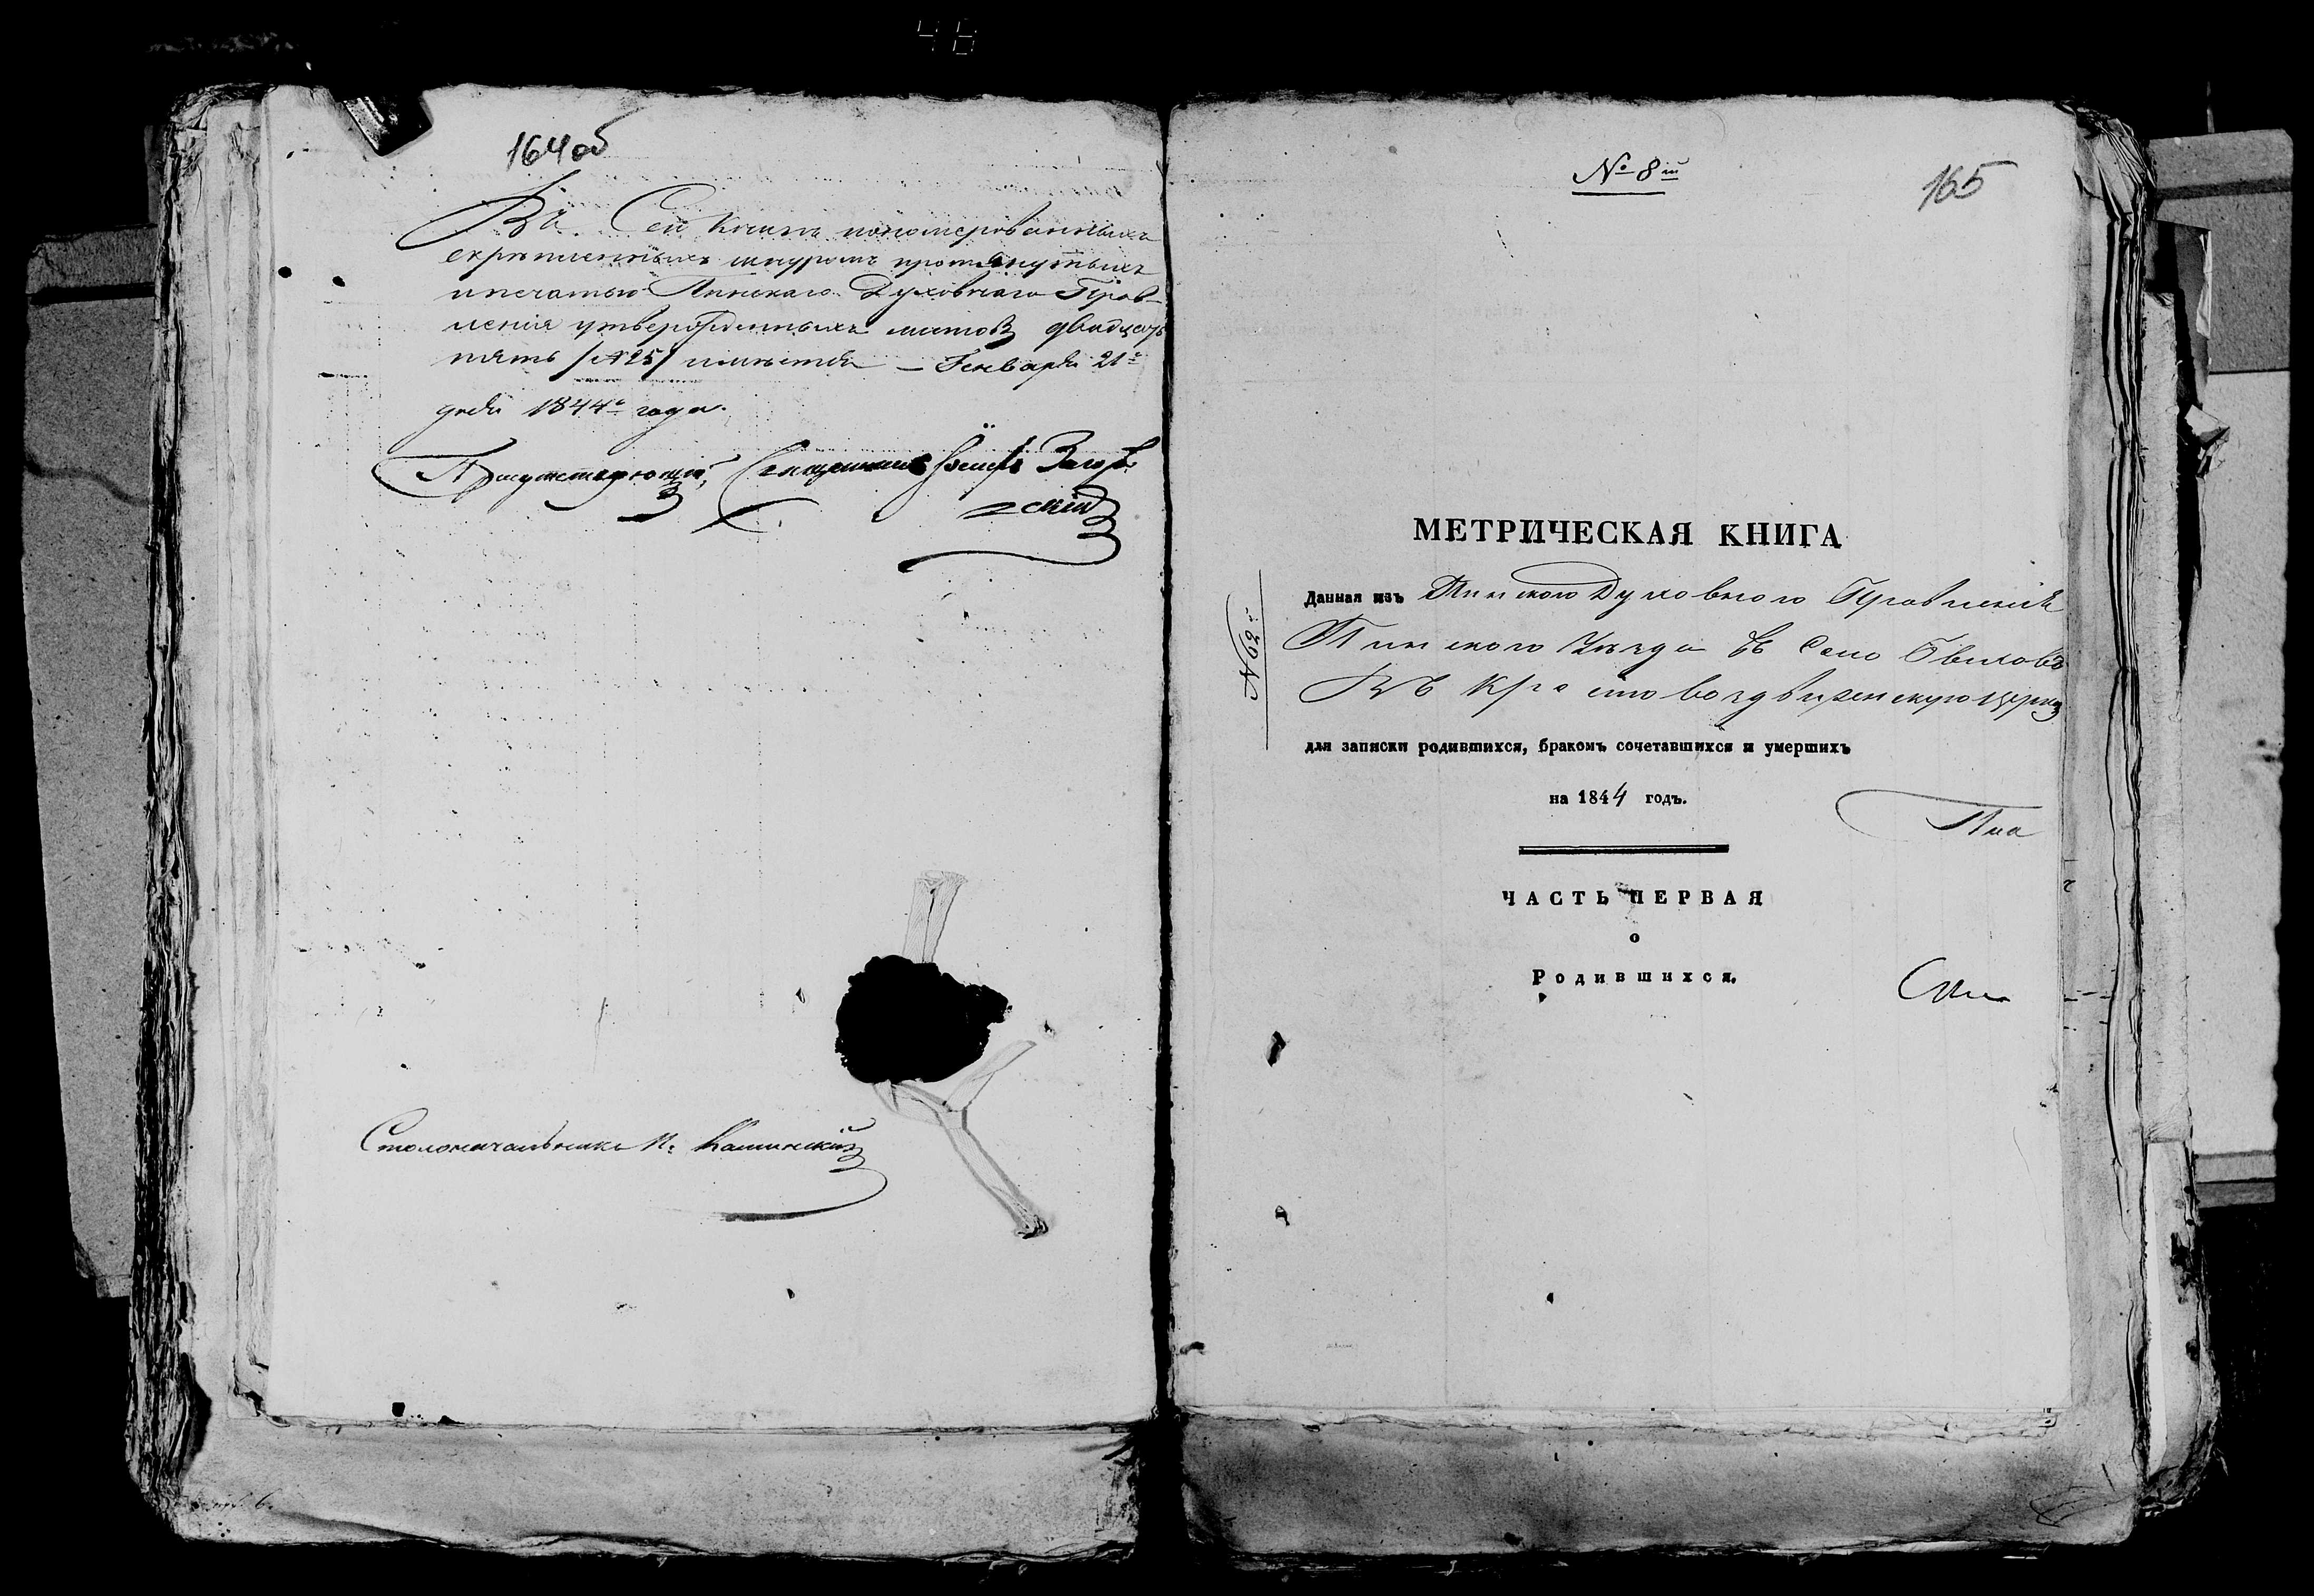 48
164 об
Въ Сей Книгѣ пономерованныхъ
скрѣпленныхъ шнуромъ протянутыхъ
и печатью Пинскаго Духовнаго Прав-
ленія утвержденныхъ листовъ двадцать
пять /№25/ имѣется — Генваря 21го
дня 1844го года.
Присутствующій, Священникъ
скій
Столоначальникъ
№ 8й
165
МЕТРИЧЕСКАЯ КНИГА
Данная изъ Пинского Духовного Правленія
№ 62й
Пинского Уѣзда въ Село
Въ Крестовоздвиженскую церковь
для записки родившихся, бракомъ сочетавшихся и умершихъ
на 1844 годъ.
ЧАСТЬ ПЕРВАЯ
о
Родившихся.